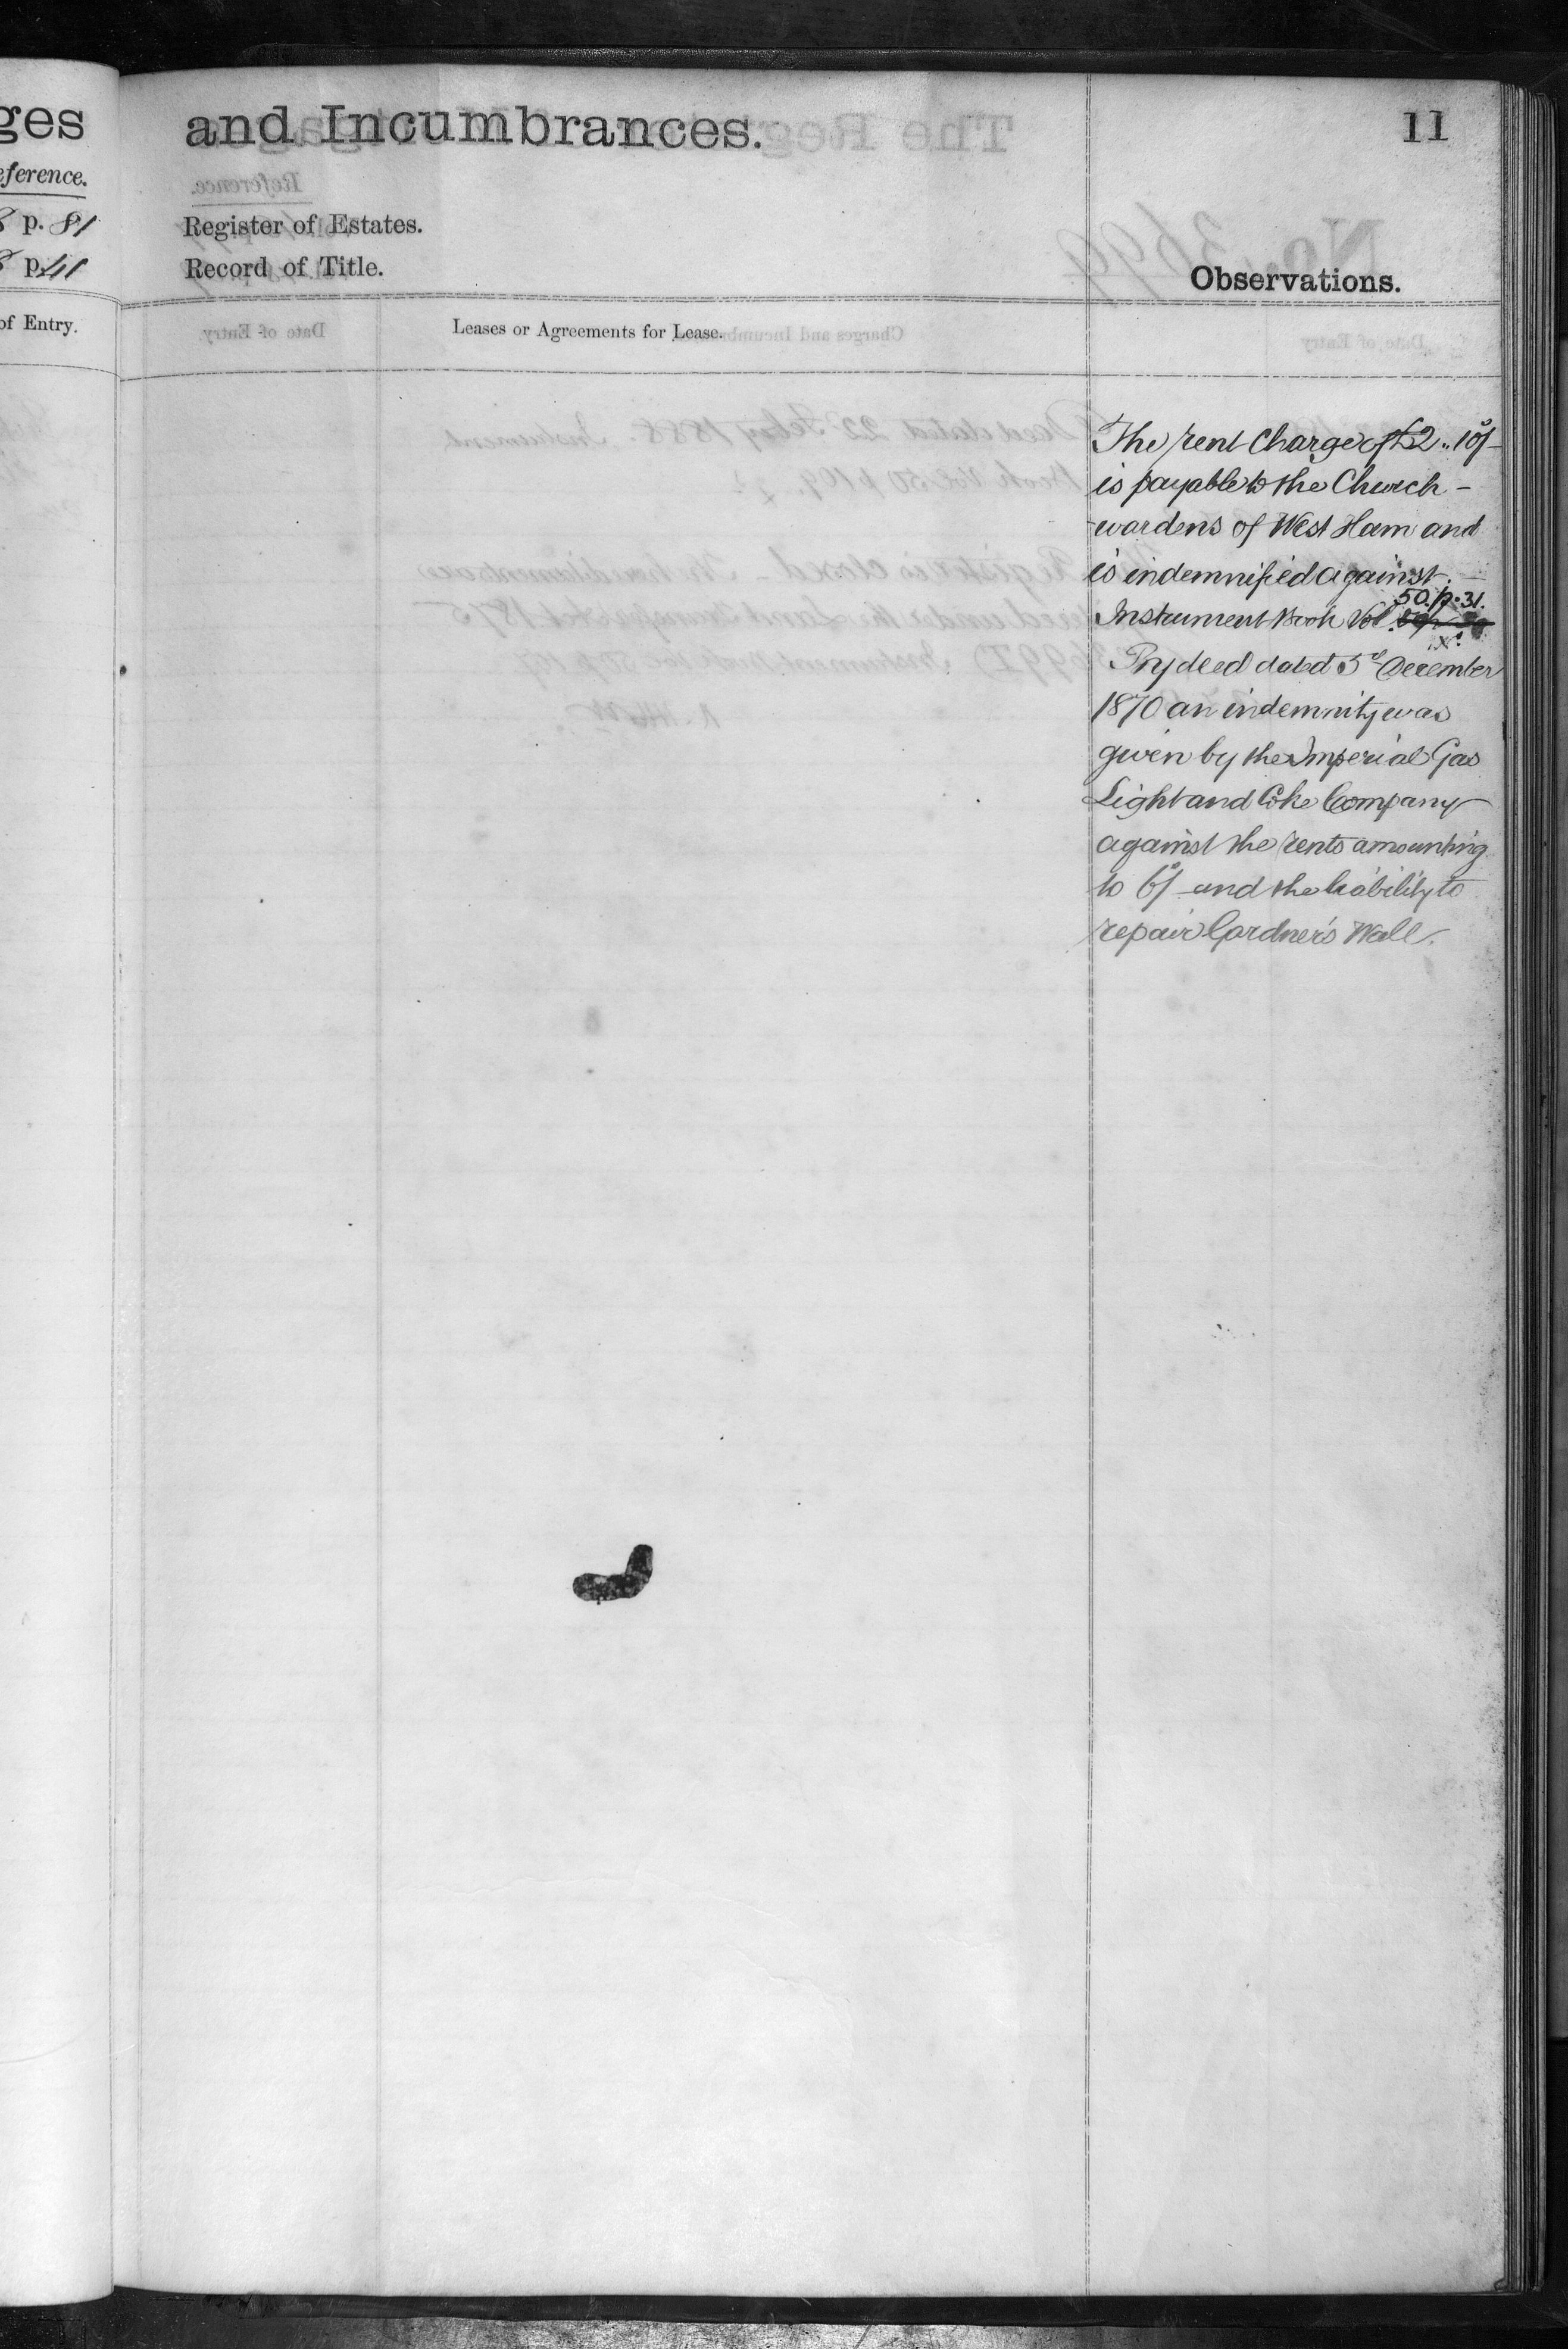 ges
eference.
8 p. 81
8 p. 41
of Entry.
and Incumbrances.
11
Register of Estates.
Record of Title.
Observations.
Leases or Agreements for Lease.
The rent Charge of £2 „ 10s/-
is payable to the Church -
wardens of West Ham and
is indemnified against. -
50. p. 31.
Instrument Book Vol.
By deed dated 5th December
1870 an indemnity was
given by the Imperial Gas
Light and Coke Company
against the rents amounting
to 6s/ and the liability to
repair Gardner's Wall.